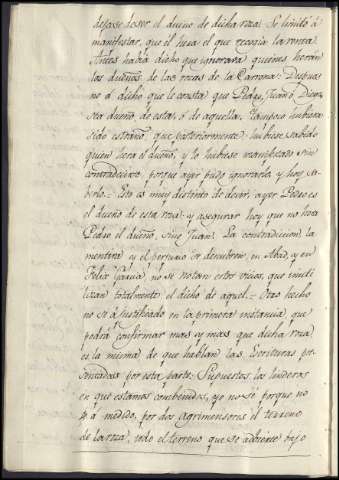 dejase de ser el dueño de dicha roza: Se limitó á
manifestar, que él hera el que recogia la renta.
Antes habia dicho que ignorava quienes heran
los dueños de las rozas de la Carrona: Despues
no á dicho que le consta que Pedro, Juan ó Diego
sea dueño de esta, ó de aquella. Tampoco hubiera
sido estraño, que posteriormente hubiese sabido
quien hera el dueño, y lo hubiese manifestado sin
contradecirse, porque ayer pudo ignorarlo y hoy sa-
berlo. Esto es muy distinto de decir; ayer Pedro es
el dueño de esta roza: y asegurar hoy que no hera
Pedro el dueño, sino Juan. La contradicion, la
mentira y el perjurio se descubren en Abad, y en
Felix no se notan estos vicios, que inuti-
lizan totalmente el dicho de aquel. Otro hecho
no se á justificado en la primera instancia que
podrá confirmar mas y mas que dicha roza
es la misma de que hablan las Escrituras pre-
sentadas por esta parte. Supuestos los linderos
en que estamos combenidos, yo no sé porque no
se á medido, por dos agrimensores el terreno
de la roza, todo el terreno que se advierte bajo